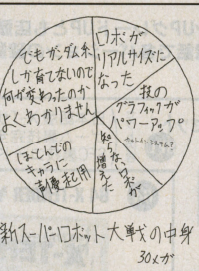 ロボが
リアルサイズに
なった
技の
グラフィックが
パワーアップ
知らないロボが
増えた
ほとんどの
キャラに
声優起用
でもガンダム系
しか育てないので
何が変わったのか
よくわかりません
新スーパーロボット大戦の中身
30メガ